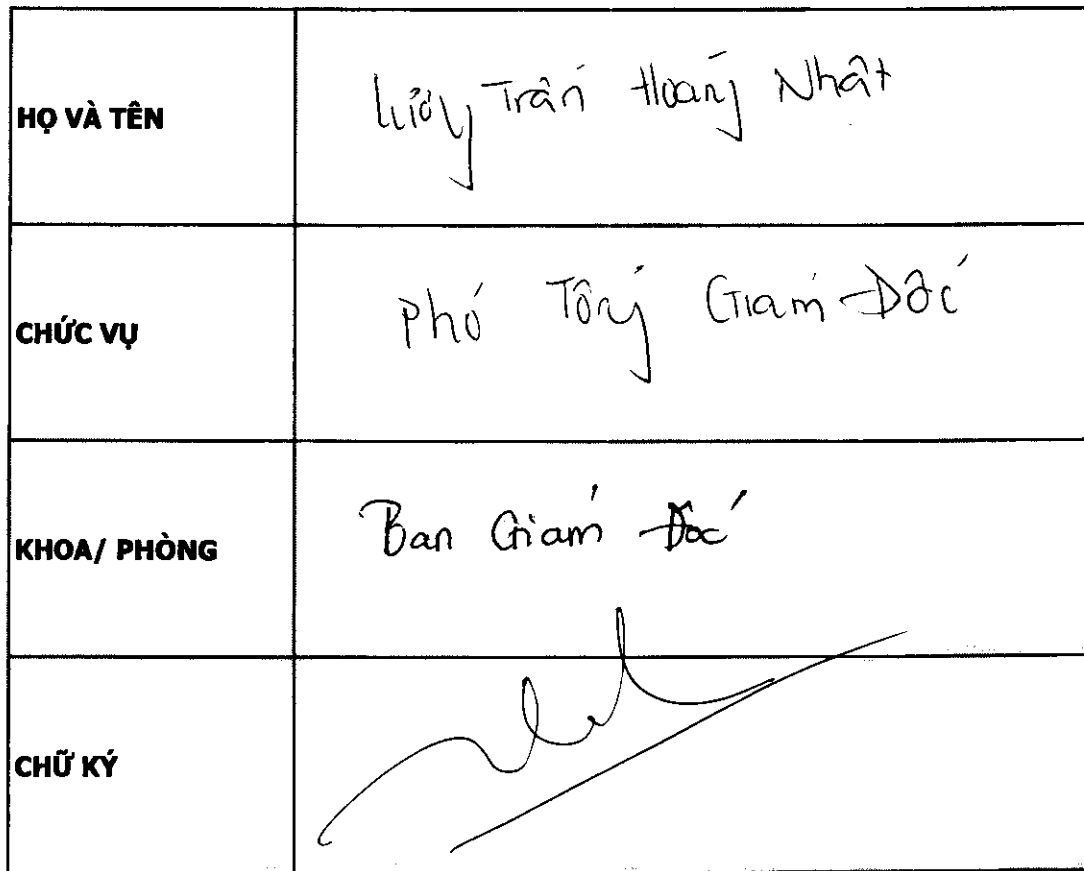 HỌ VÀ TÊN
Trần Hoàng Nhật
CHỨC VỤ
Phó Tổng Giám Đốc
KHOA/ PHÒNG
Ban Giám Đốc
CHỮ KÝ